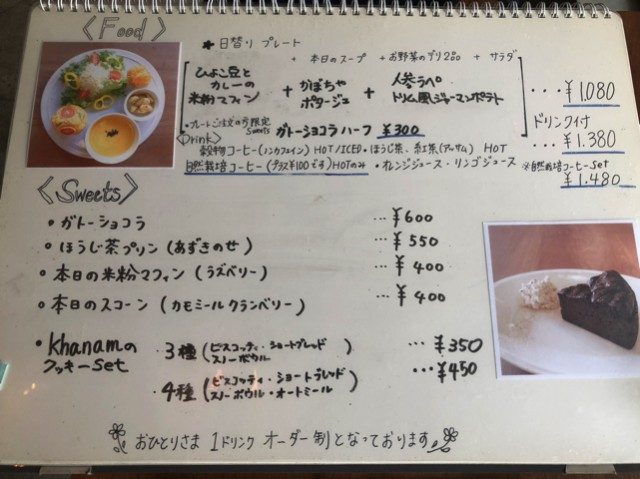 〈Food〉
★ 日替り プレート
+ 本日のスープ + お野菜のデリ2品 + サラダ
ひよこ豆と カレーの 米粉マフィン + かぼちゃ ポタージュ + 人参ラペ トリム風ジャーマンポテト ・・・¥1,080
・プレートご注文の方限定 Sweets ガトーショコラ ハーフ ¥300
ドリンク付 ・・・¥1,380
〈Drink〉
穀物コーヒー(ノンカフェイン) HOT/ICED・ほうじ茶、紅茶(アッサム) HOT
自然栽培コーヒー(プラス¥100です)HOTのみ ・オレンジジュース・リンゴジュース
※自然栽培コーヒーSet ¥1,480
〈Sweets〉
・ガトーショコラ ・・・¥600
・ほうじ茶プリン(あずきのせ) ・・・¥550
・本日の米粉マフィン(ラズベリー) ・・・¥400
・本日のスコーン(カモミールクランベリー) ・・・¥400
・khanamの クッキーSet 3種(ビスコッティ・ショートブレッド スノーボウル) ・・・¥350
4種(ビスコッティ・ショートブレッド スノーボウル・オートミール) ・・・¥450
おひとりさま 1ドリンク オーダー制となっております